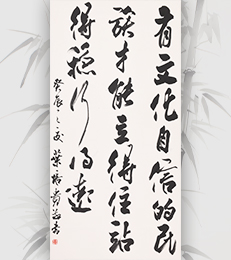 有文化自信的民
族才能立得住站
得稳行得远
癸辰之夏 叶培贵